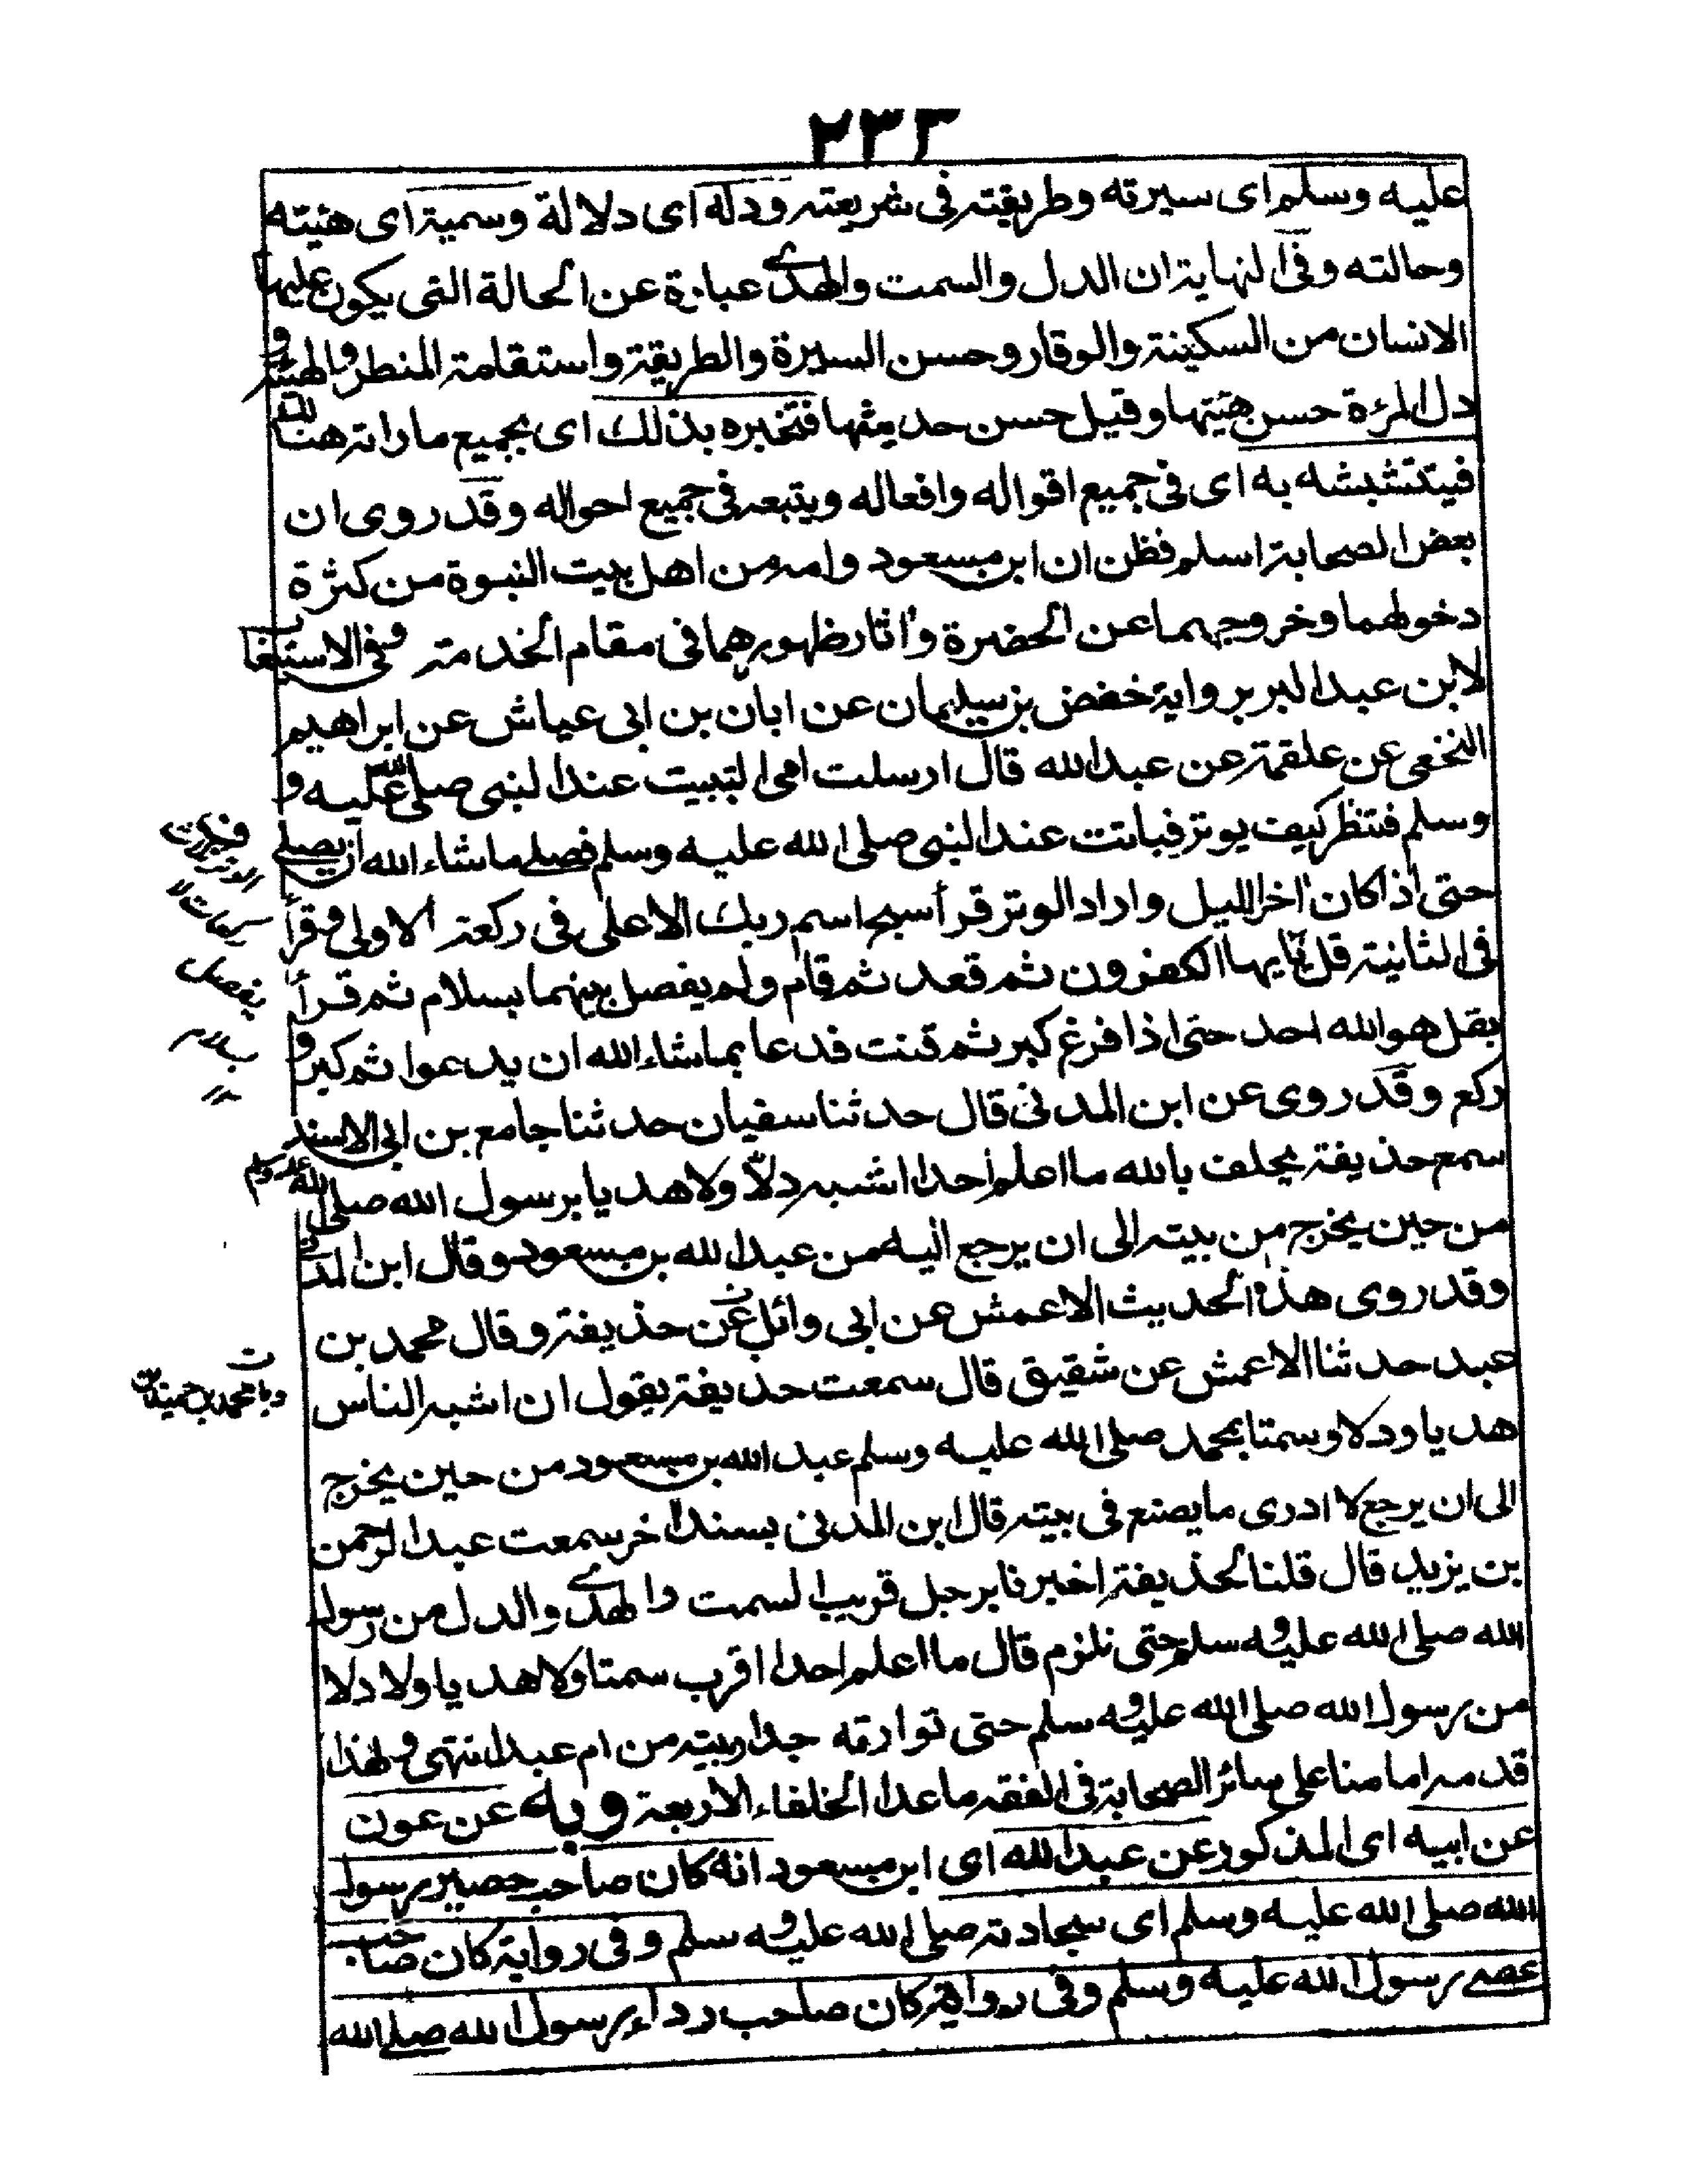 ٢٣٣
عليه وسلم اى سيرته وطريقته فى شريعته ودله اى دلالة وسميته اى هيئته
وحالته وفى النهاية ان الدل والسمت والهدى عبارة عن الحالة التى يكون عليها
الانسان من السكينة والوقار وحسن السيرة والطريقة واستقامة المنظر والهيئة و
دل المرءة حسن هيئتها وقيل حسن حديثها فتخبره بذلك اى بجميع ما راته هنالك
فيتشبه به اى فى جميع اقواله وافعاله ويتبعه فى جميع احواله وقد روى ان
بعض الصحابة اسلم فظن ان ابن مسعود وامه من اهل بيت النبوة من كثرة
دخولهما وخروجهما عن الحضرة واثار ظهورهما فى مقام الخدمة وفى الاستيعاب
لابن عبد البر برواية حفص بن سليمان عن ابان بن ابى عياش عن ابراهيم
النخعى عن علقمة عن عبد الله قال ارسلت امى لتبيت عند النبى صلى الله عليه و
وسلم فتنظر كيف يوتر فباتت عند النبى صلى الله عليه وسلم فصلى ما شاء الله ان يصلى
حتى اذا كان اخر الليل واراد الوتر قرأ سبح اسم ربك الاعلى فى ركعة الاولى وقرأ
فى الثانية قل يايها الكفرون ثم قعد ثم قام ولم يفصل بينهما بسلام ثم قرأ
بقل هو الله احد حتى اذا فرغ كبر ثم قنت فدعا بما شاء الله ان يدعوا ثم كبر و
ركع وقد روى عن ابن المدنى قال حدثنا سفيان حدثنا جامع بن ابى الاسند
سمع حذيفة يحلف بالله ما اعلم احدا اشبه دلا ولا هديا برسول الله صلى الله عليه وسلم
من حين يخرج من بيته الى ان يرجع اليه من عبد الله بن مسعود وقال ابن المدنى
وقد روى هذا الحديث الاعمش عن ابى وائل عن حذيفة وقال محمد بن
عبد حدثنا الاعمش عن شقيق قال سمعت حذيفة يقول ان اشبه الناس
هديا ودلا وسمتا بمحمد صلى الله عليه وسلم عبد الله بن مسعود من حين يخرج
الى ان يرجع لا ادرى ما يصنع فى بيته قال ابن المدنى بسند اخر سمعت عبد الرحمن
بن يزيد قال قلنا لحذيفة اخبرنا برجل قريب السمت والهدى والدل من رسول
الله صلى الله عليه وسلم حتى نلزم قال ما اعلم احدا اقرب سمتا ولا هديا ولا دلا
من رسول الله صلى الله عليه وسلم حتى توارته جدار بيته من ام عبد انتهى ولهذا
قدمه امامنا على سائر الصحابة فى الفقه ما عدا الخلفاء الاربعة وبه عن عون
عن ابيه اى المذكور عن عبد الله اى ابن مسعود انه كان صاحب حصير رسول
الله صلى الله عليه وسلم اى سجادته صلى الله عليه وسلم وفى رواية كان صاحب
عصى رسول الله عليه وسلم وفى رواية كان صاحب رداء رسول الله صلى الله
الوتر ثلاث
ركعات لا
يفصل
بسلام